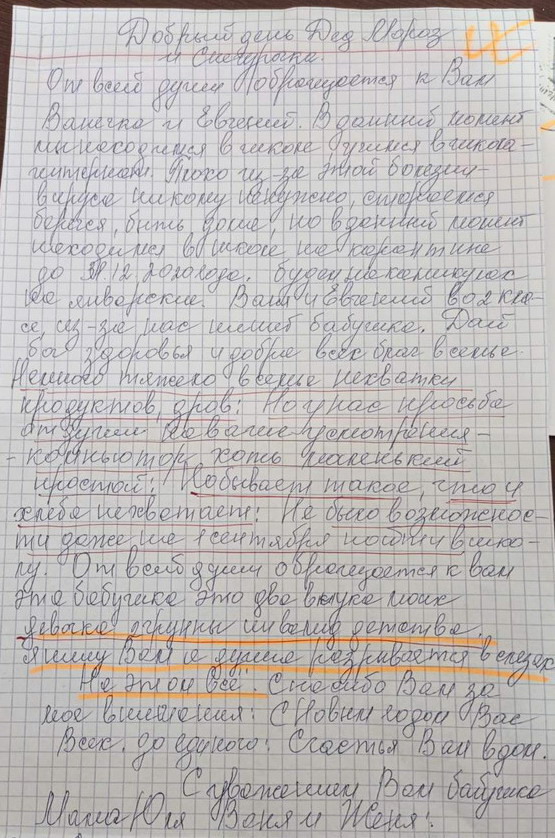 Добрый день Дед Мороз
и Снегурочка.
От всей души оброщается к Вам
Ванечка и Евгений. В данный момент
мы находимся в школе учимся в школа-
интернат. Плохо из-за этой болезни-
вируса никому ненужно, стораемся
берегся, быть доме, но в данный момент
находимся в школе на карантине
до 12. 2020 года. Будем на каникулах
на январские. Ваня и Евгений во 2 кла-
се, из-за нас пишет бабушка. Дай
бог здоровья и добра всех благ в семье.
Немного тяжело в семье нехватки
продуктов, дров: Но у нас просьба
от души на ваше усмотрения-
- компьютор хоть маленький
простой: Но бывает такое, что и
хлеба нехватает: Не было возможнос-
ти даже на 1 сентября пойти в шко-
лу. От всей души оброщается к вам
эта бабушка это два внука моих
девочка группы инвалид детства.
я пишу Вам а душа разрывается в слезах
На этом всё. Спасибо Вам за
мое внимания: С Новым годом Вас
Всех. до единого: Счастья Вам в дом.
С уважением Вам бабушка
Мама Юля Ваня и Женя.